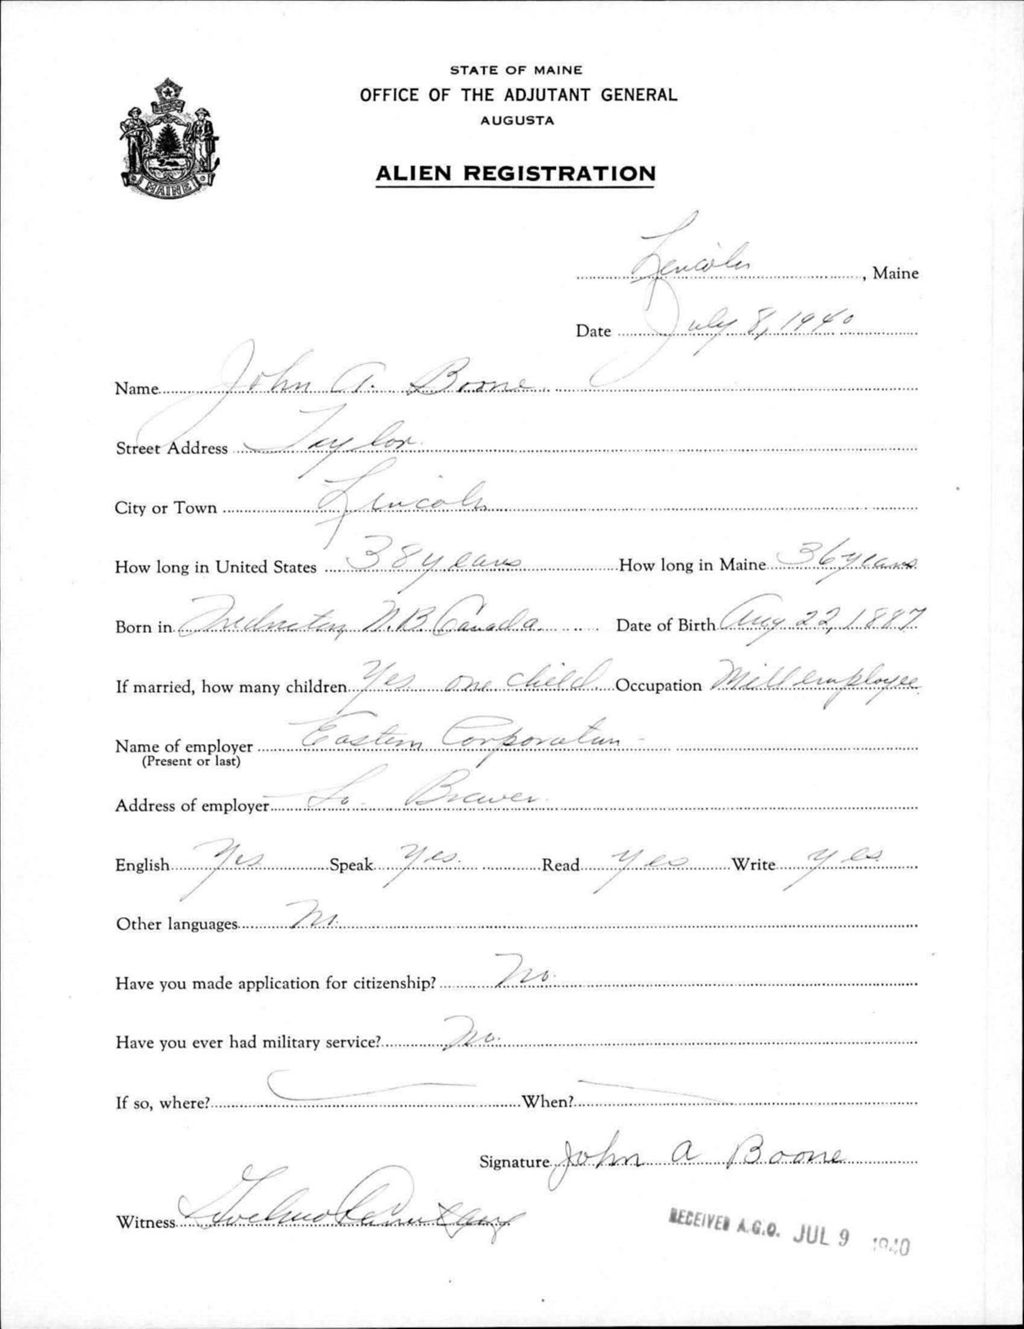 STATE OF MAINE
OFFICE OF THE ADJUTANT GENERAL
AUGUSTA
ALIEN REGISTRATION
MAINE
Lincoln, Maine
Date July 8, 1940
Name John A. Boone
Street Address Taylor
City or Town Lincoln
How long in United States 38 years How long in Maine 36 years
Born in Fredericton, N.B. Canada Date of Birth Aug 22, 1887
If married, how many children Yes one child Occupation Mill employee
Name of employer Eastern Corporation
(Present or last)
Address of employer So. Brewer
English Yes Speak Yes. Read Yes Write Yes
Other languages No.
Have you made application for citizenship? No.
Have you ever had military service? No.
If so, where? When?
Signature John A Boone
Witness
RECEIVED A.G.O. JUL 9 1940